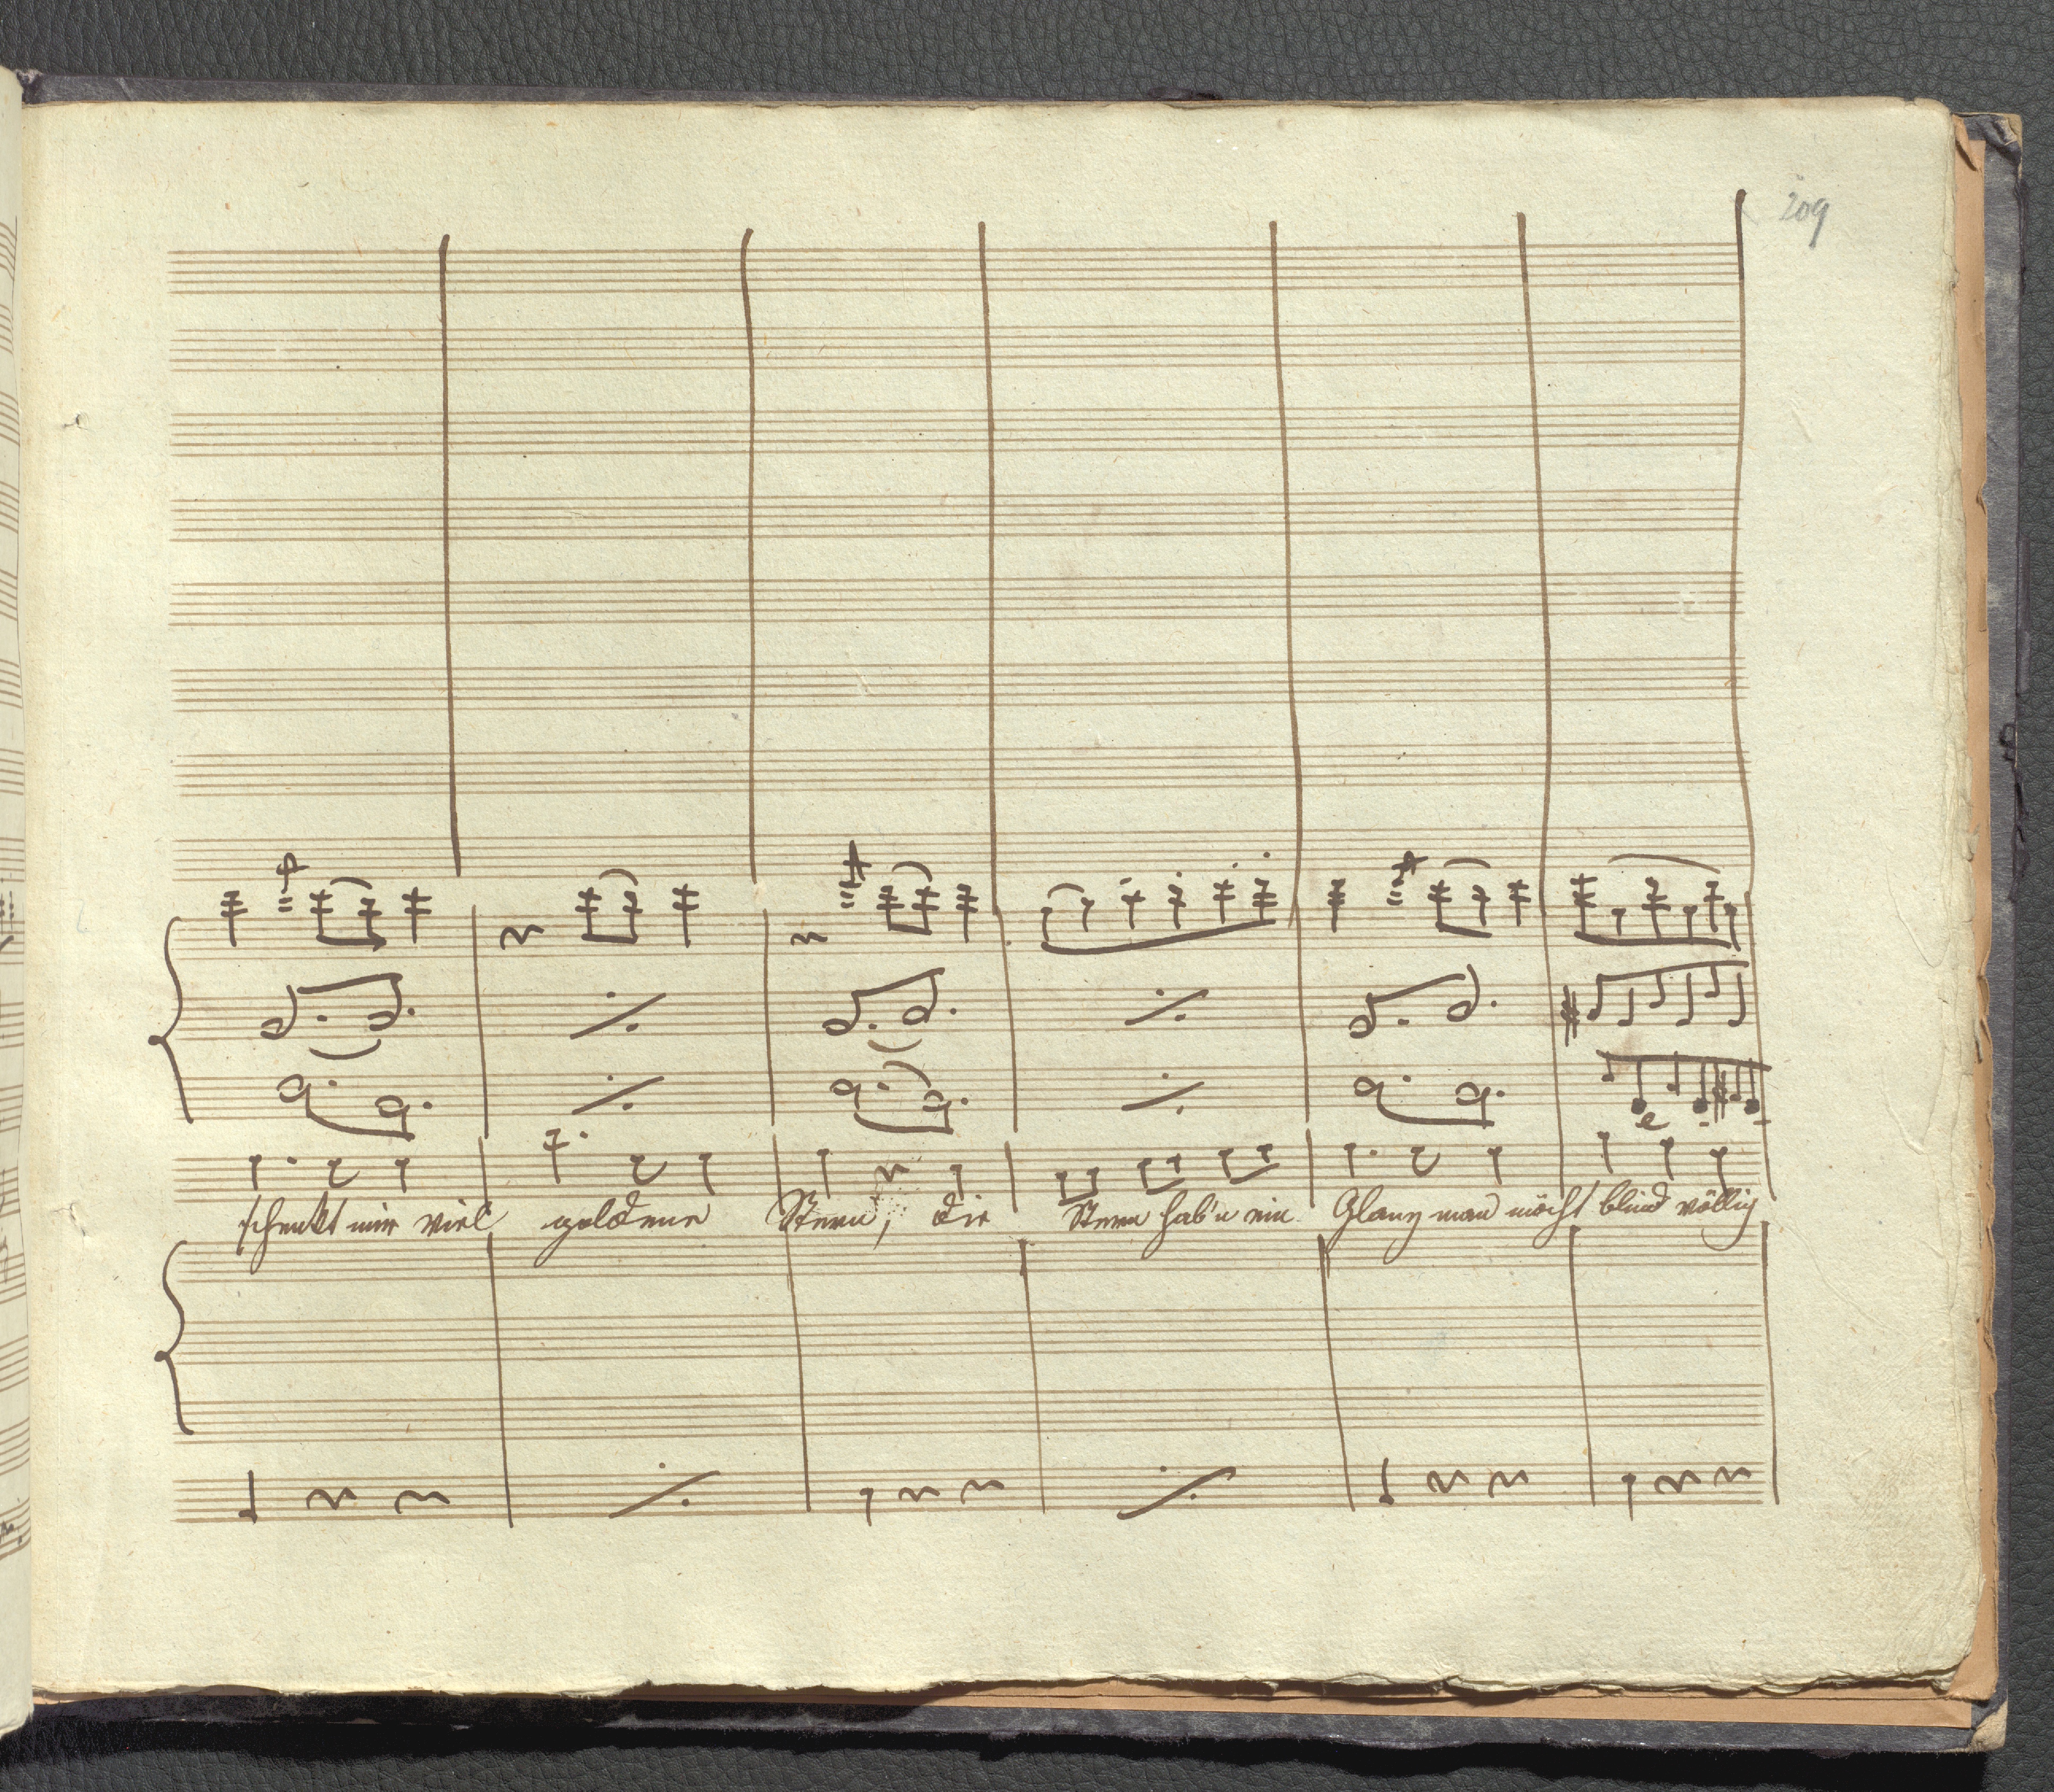 209
schenkt mir viel goldene Stern, die Stern hab'n ein Glanz man möcht blind völlig